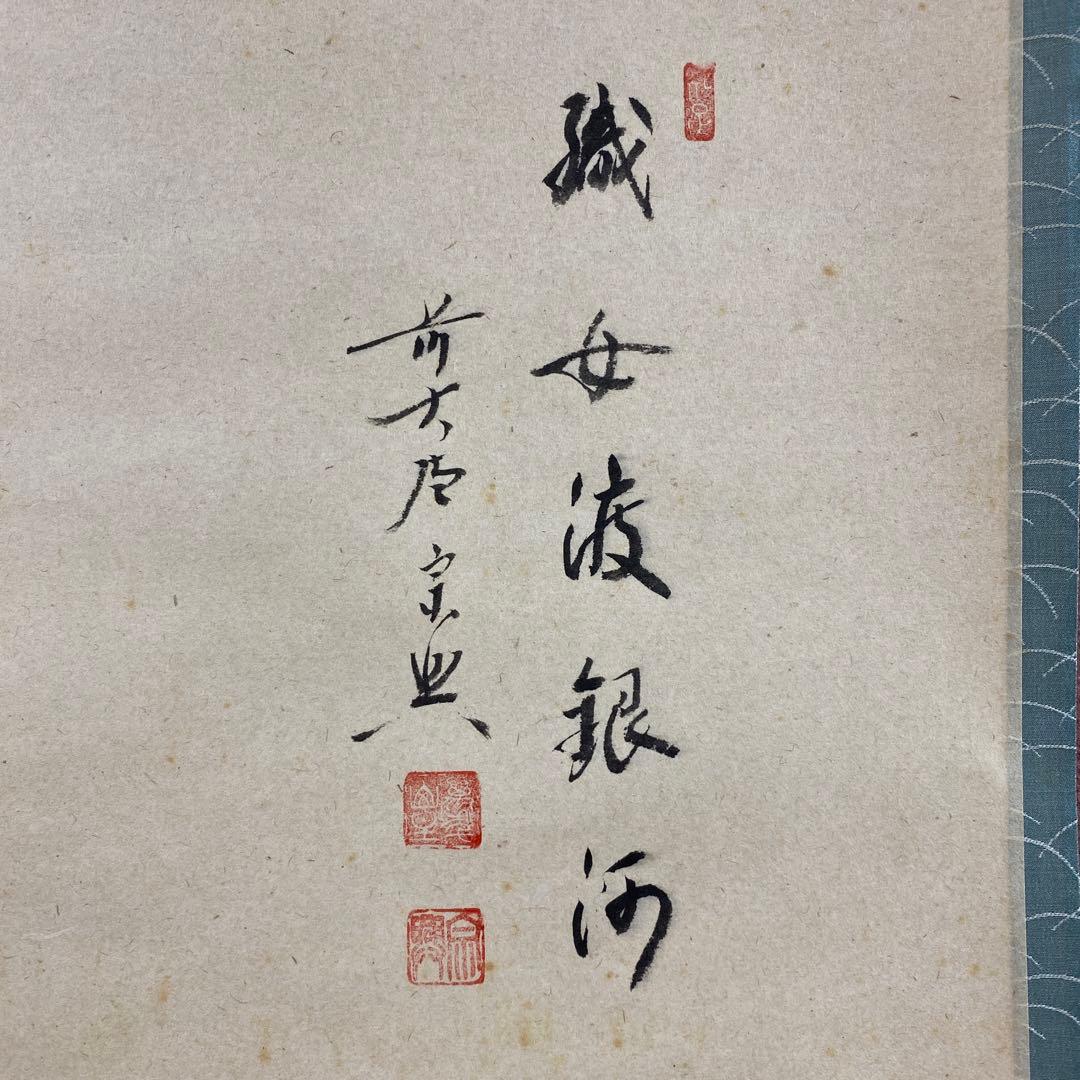 織女渡銀河
前大徳宗典